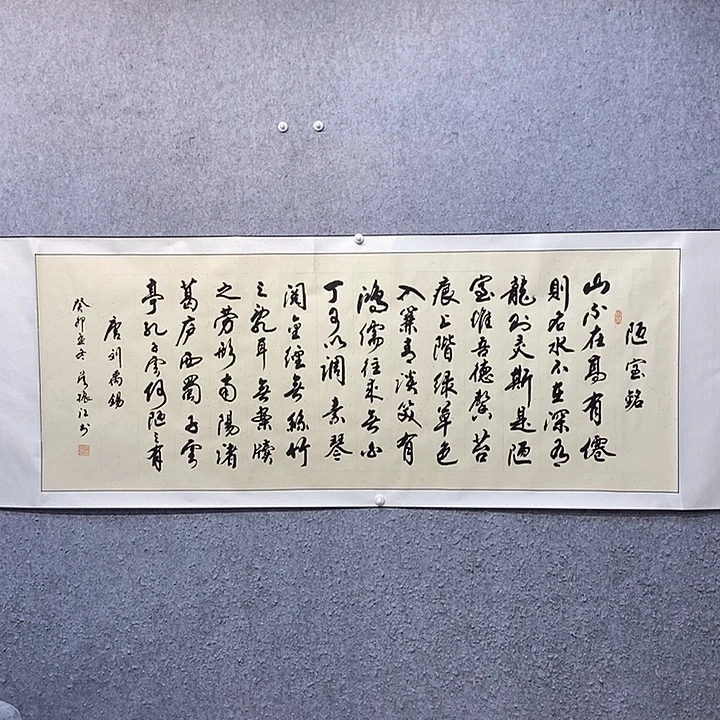 陋室銘
山不在高有僊
則名水不在深有
龍則灵斯是陋
室惟吾德馨苔
痕上階绿草色
入簾青談笑有
鴻儒往来無白
丁可以調素琴
閲金經無絲竹
之亂耳無案牘
之劳形南陽渚
葛庐西蜀子雲
亭孔子雲何陋之有
唐刘禹锡
癸卯孟冬振江书